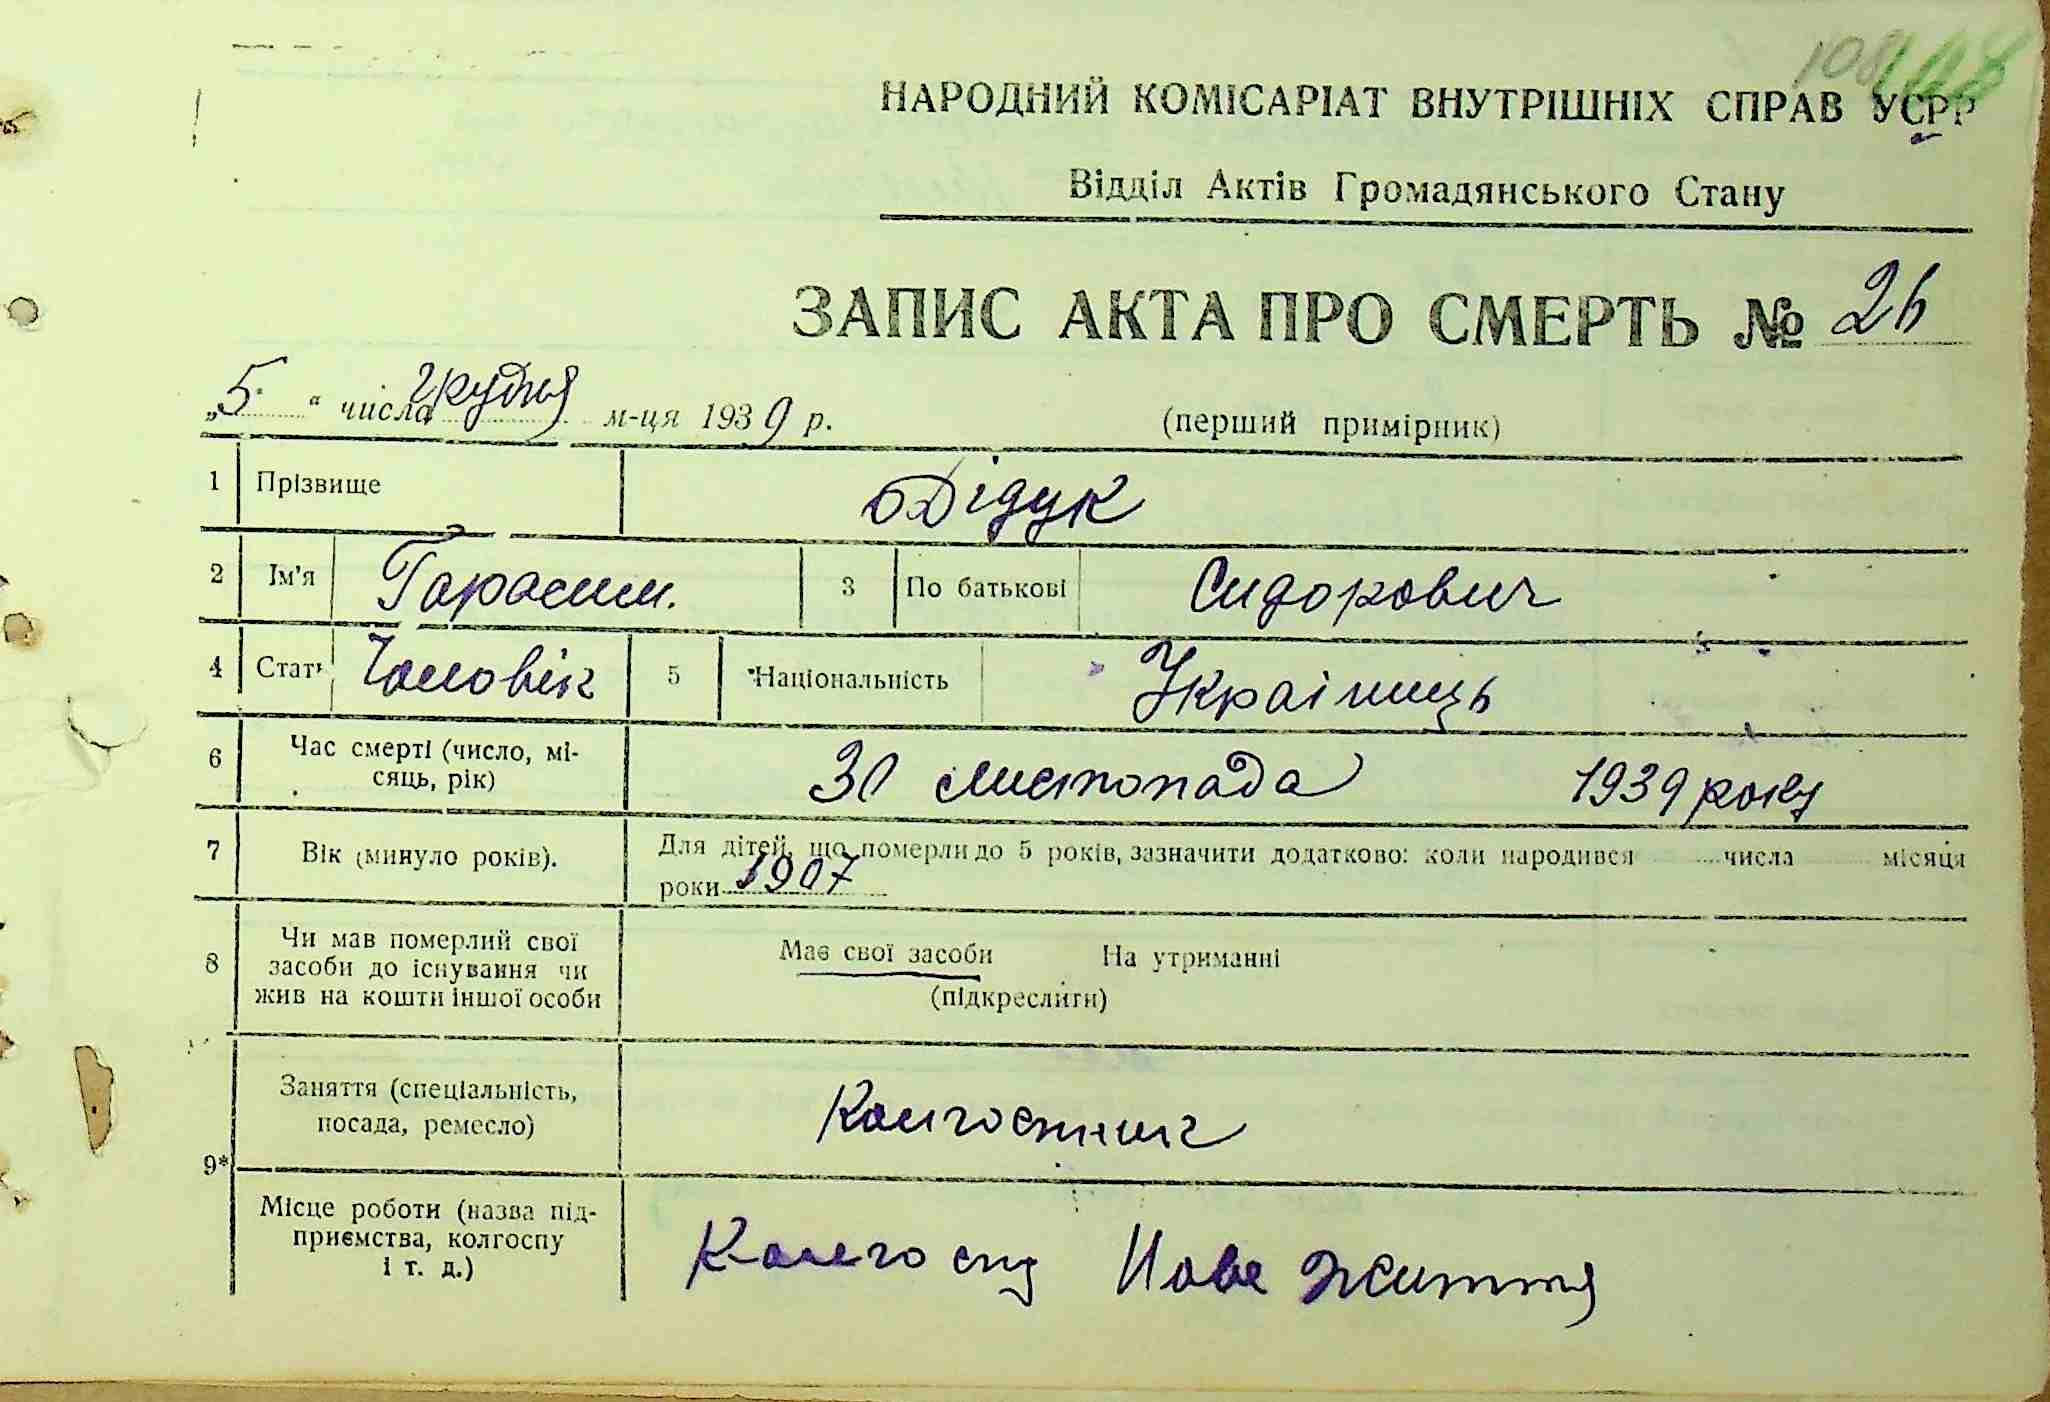 108 108
НАРОДНИЙ КОМІСАРІАТ ВНУТРІШНІХ СПРАВ УСРР
Відділ Актів Громадянського Стану
ЗАПИС АКТА ПРО СМЕРТЬ № 26
„5“ числа грудня м-ця 1939 р. (перший примірник)
1 Прізвище Дідук
2 Ім'я Гарасим. 3 По батькові Сидорович
4 Стать Чоловік 5 Національність Українець
6 Час смерті (число, мі-
сяць, рік) 30 листопада 1939 року
7 Вік (минуло років). Для дітей, що померли до 5 років, зазначити додатково: коли народився числа місяця
роки 1907
8 Чи мав померлий свої
засоби до існування чи
жив на кошти іншої особи
Має свої засоби На утриманні
(підкреслити)
9* Заняття (спеціальність,
посада, ремесло) Колгоспник
Місце роботи (назва під-
приємства, колгоспу
і т. д.) Колгосп Нове Життя